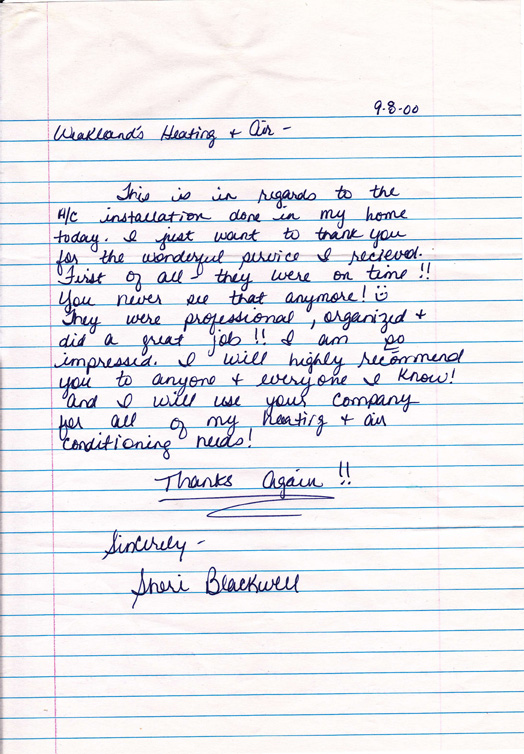 9-8-00
Weakland's Heating + Air -
This is in regards to the
A/C installation done in my home
today. I just want to thank you
for the wonderful service I recieved.
First of all - they were on time!!
You never see that anymore! ☺
They were professional, organized +
did a great job!! I am so
impressed. I will highly recommend
you to anyone + everyone I know!
And I will use your company
for all of my heating + air
conditioning needs!
Thanks Again!!
Sincerely -
Sheri Blackwell